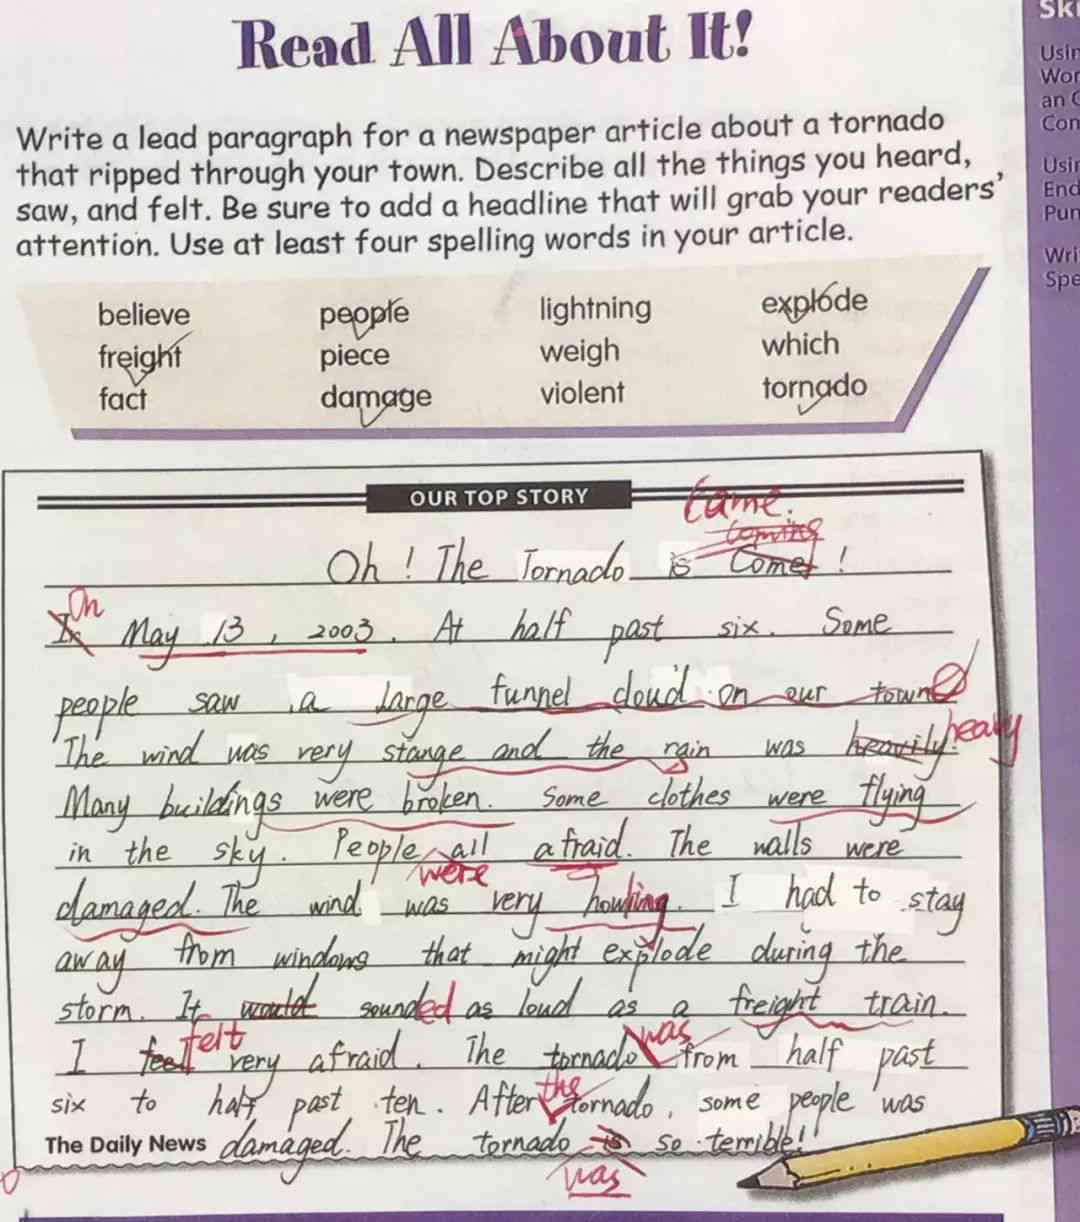 Read All About It!
Ski
Usin
Wor
an C
Con
Write a lead paragraph for a newspaper article about a tornado
that ripped through your town. Describe all the things you heard,
saw, and felt. Be sure to add a headline that will grab your readers'
attention. Use at least four spelling words in your article.
Usin
End
Pun
Wri
Spe
believe people lightning explode
freight piece weigh which
fact damage violent tornado
OUR TOP STORY
Came.
coming
Oh! The Tornado is Comes!
On
In May 13, 2003. At half past six. Some
people saw a large funnel cloud on our town
The wind was very stange and the rain was heavily. heavy
Many buildings were broken. Some clothes were flying
in the sky. People all afraid. The walls were
were
damaged. The wind was very howling. I had to stay
away from windows that might explode during the
storm. It would sounded as loud as a freight train.
felt was
I feel very afraid. The tornado from half past
the
six to half past ten. After tornado, some people was
The Daily News damaged. The tornado is so terrible!
was